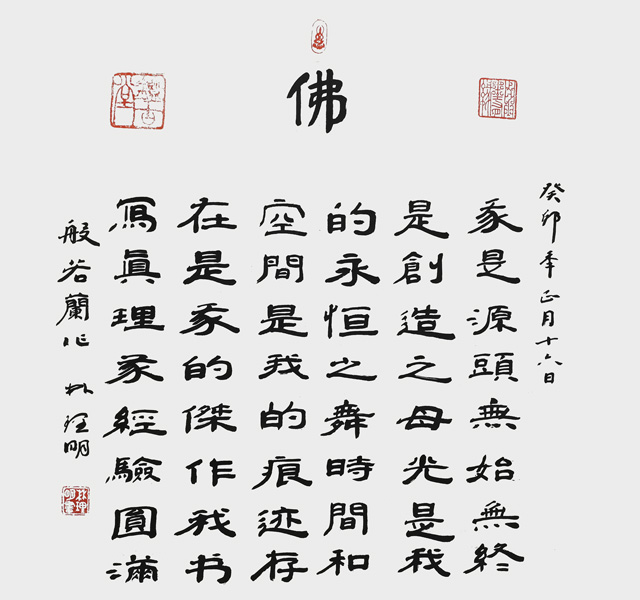 佛
癸卯年正月十六日
我是源頭無始無終
是創造之母光是我
的永恒之舞時間和
空間是我的痕迹存
在是我的傑作我书
寫眞理我經驗圓滿
般若蘭作